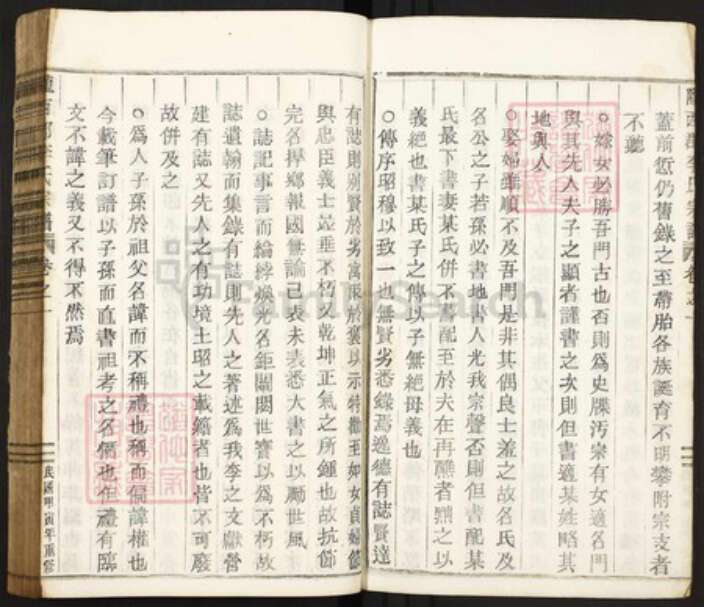 蓋前愆仍舊錄之至帶胎各族誕育不明攀附宗支者
不聽
○嫁女必勝吾門古也否則為史牒汚宗有女適名門
與其先人夫子之顯者謹書之次則但書適某姓略其
地與人
○娶婦雖順不及吾門是非其偶良士羞之故名氏及
名公之子若孫必書地書人光我宗聲否則但書配某
氏最下書妻某氏併不書配至於夫在再醮者黜之以
義絕也書某氏子之傳以子無絕母義也
○傳序昭穆以致一也無賢劣悉錄焉逸德有誌賢達
有誌則別賢於劣寓貶於褒以示特徽至如女貞婦節
與忠臣義士並垂不朽又乾坤正氣之所鍾也故抗節
完名捍鄉報國無論已表未表悉大書之以勵世風
○誌記事言而綸綍煥光名鉅閥閱世寶以為不朽故
誌遺翰而集錄有誌則先人之著述為我李之文獻營
建有誌又先人之有功境土昭之載籍者也皆不可廢
故併及之
○為人子孫於祖父名諱而不稱禮也稱而偏諱權也
今載筆訂譜以子孫而直書祖考之名偩也乍禮有臨
文不諱之義又不得不然焉
隴西郡李氏宗譜 卷之一
民國甲寅年重修
FamilySearch